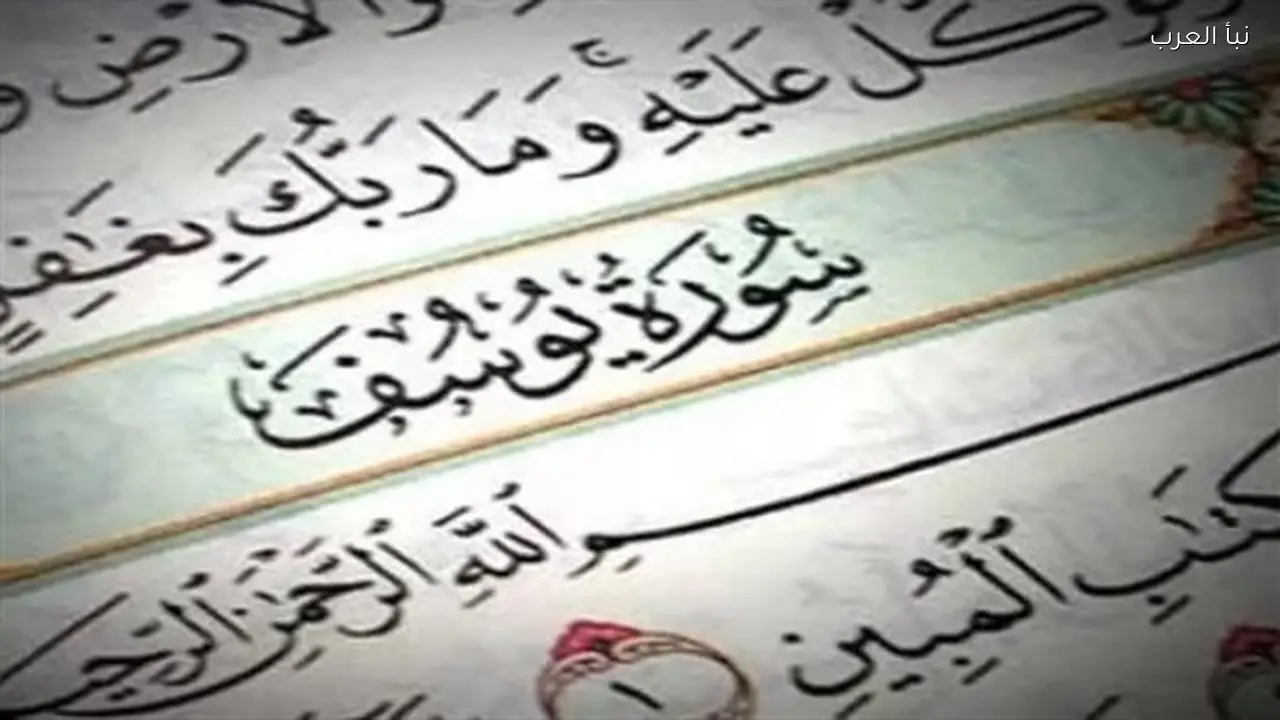 نبأ العرب
وَٱلْأَرْضِ
وَتَوَكَّلْ عَلَيْهِ ۚ وَمَا رَبُّكَ بِغَـٰفِلٍ
سُورَةُ يُوسُفَ
بِسْمِ ٱللَّهِ ٱلرَّحْمَـٰنِ ٱلرَّحِيمِ
ٱلْكِتَـٰبِ ٱلْمُبِينِ ١